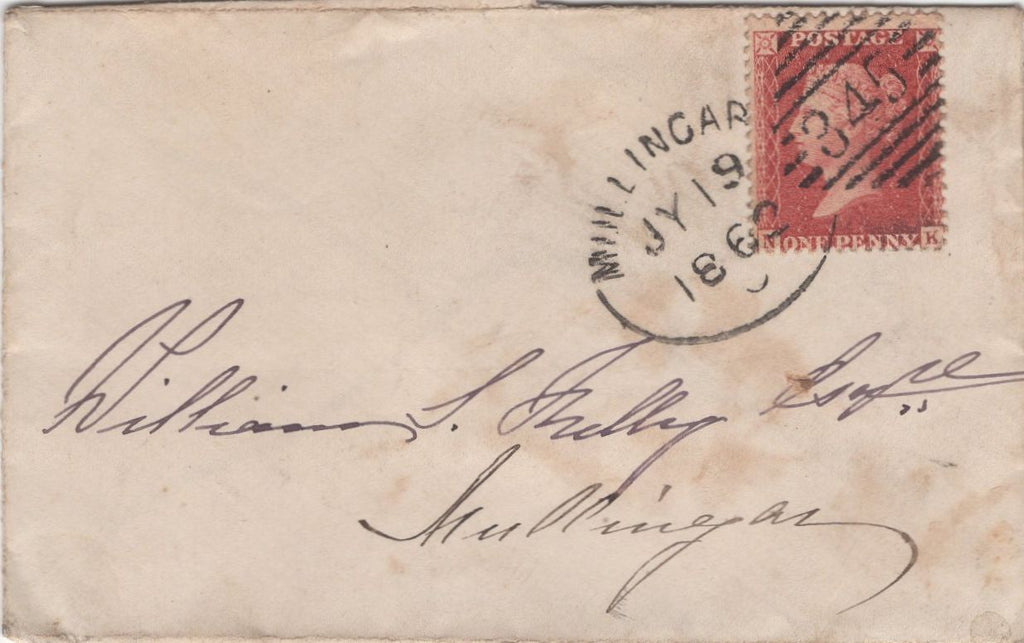 POSTAGE
345
MULLINGAR
JY 19
186
ONE PENNY K
William S. Kelly Esqre
Mullingar